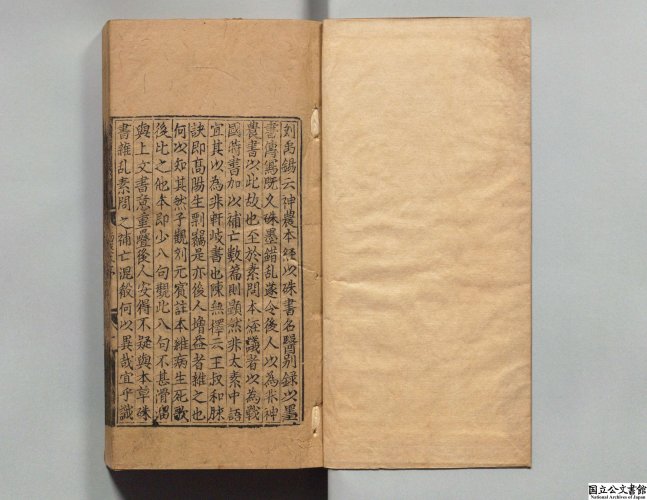 刘禹錫云神農本經以硃書名醫别錄以墨
書傳寫既久硃墨錯乱遂令後人以為非神
農書以此故也至於素問本經識者以為戰
國時書加以補亡數篇則顕然非太素中語
宜其以為非軒岐書也陳無擇云王叔和脉
訣即髙陽生剽竊是亦後人增益者雜之也
何以知其然予觀刘元賓註本雜病生死歌
後比之他本即少八句觀此八句不甚滑溜
與上文書意重疊後人安得不疑與本草硃
書雜乱素問之補亡混殽何以異哉宜乎識
国立公文書館
National Archives of Japan